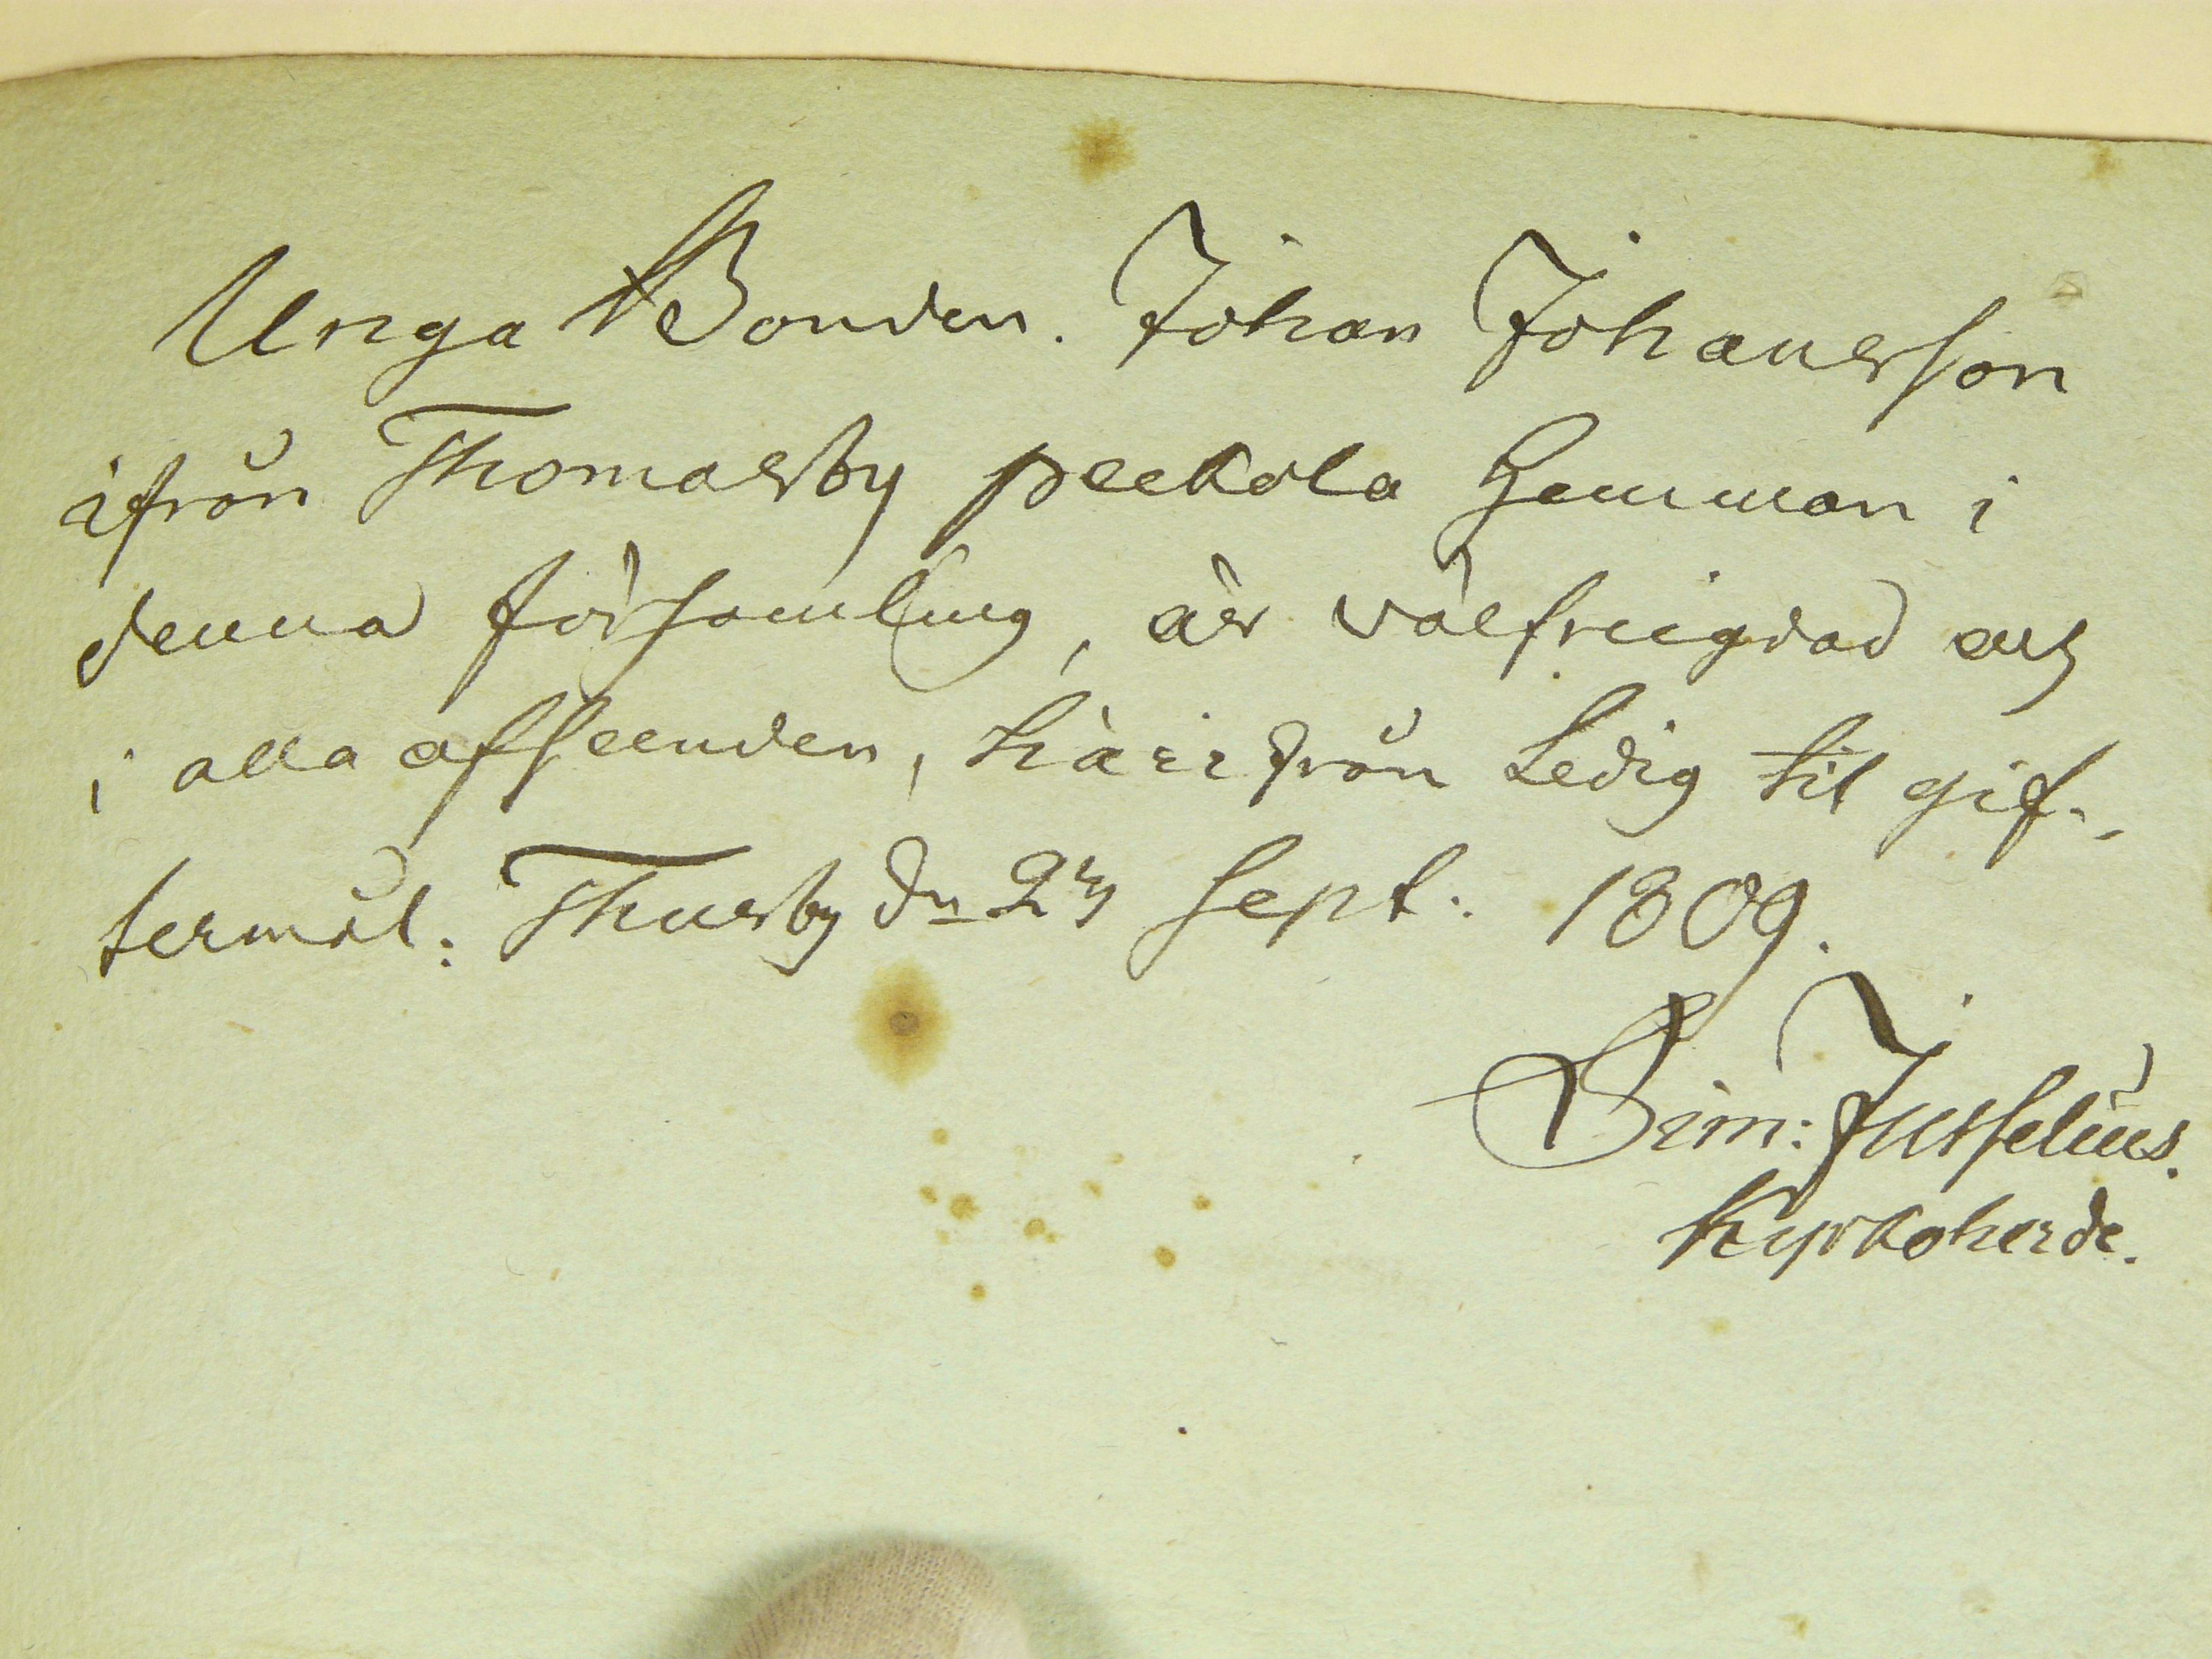 Unga Bonden. Johan Johansson
ifrån Thomasby peekola Hemman i
denna församling, är välfreigdad och
i alla afseenden, härifrån Ledig til gif-
termål: Thusby dn 23 Sept: 1809.
Sim: Jusselius.
Kyrkoherde.